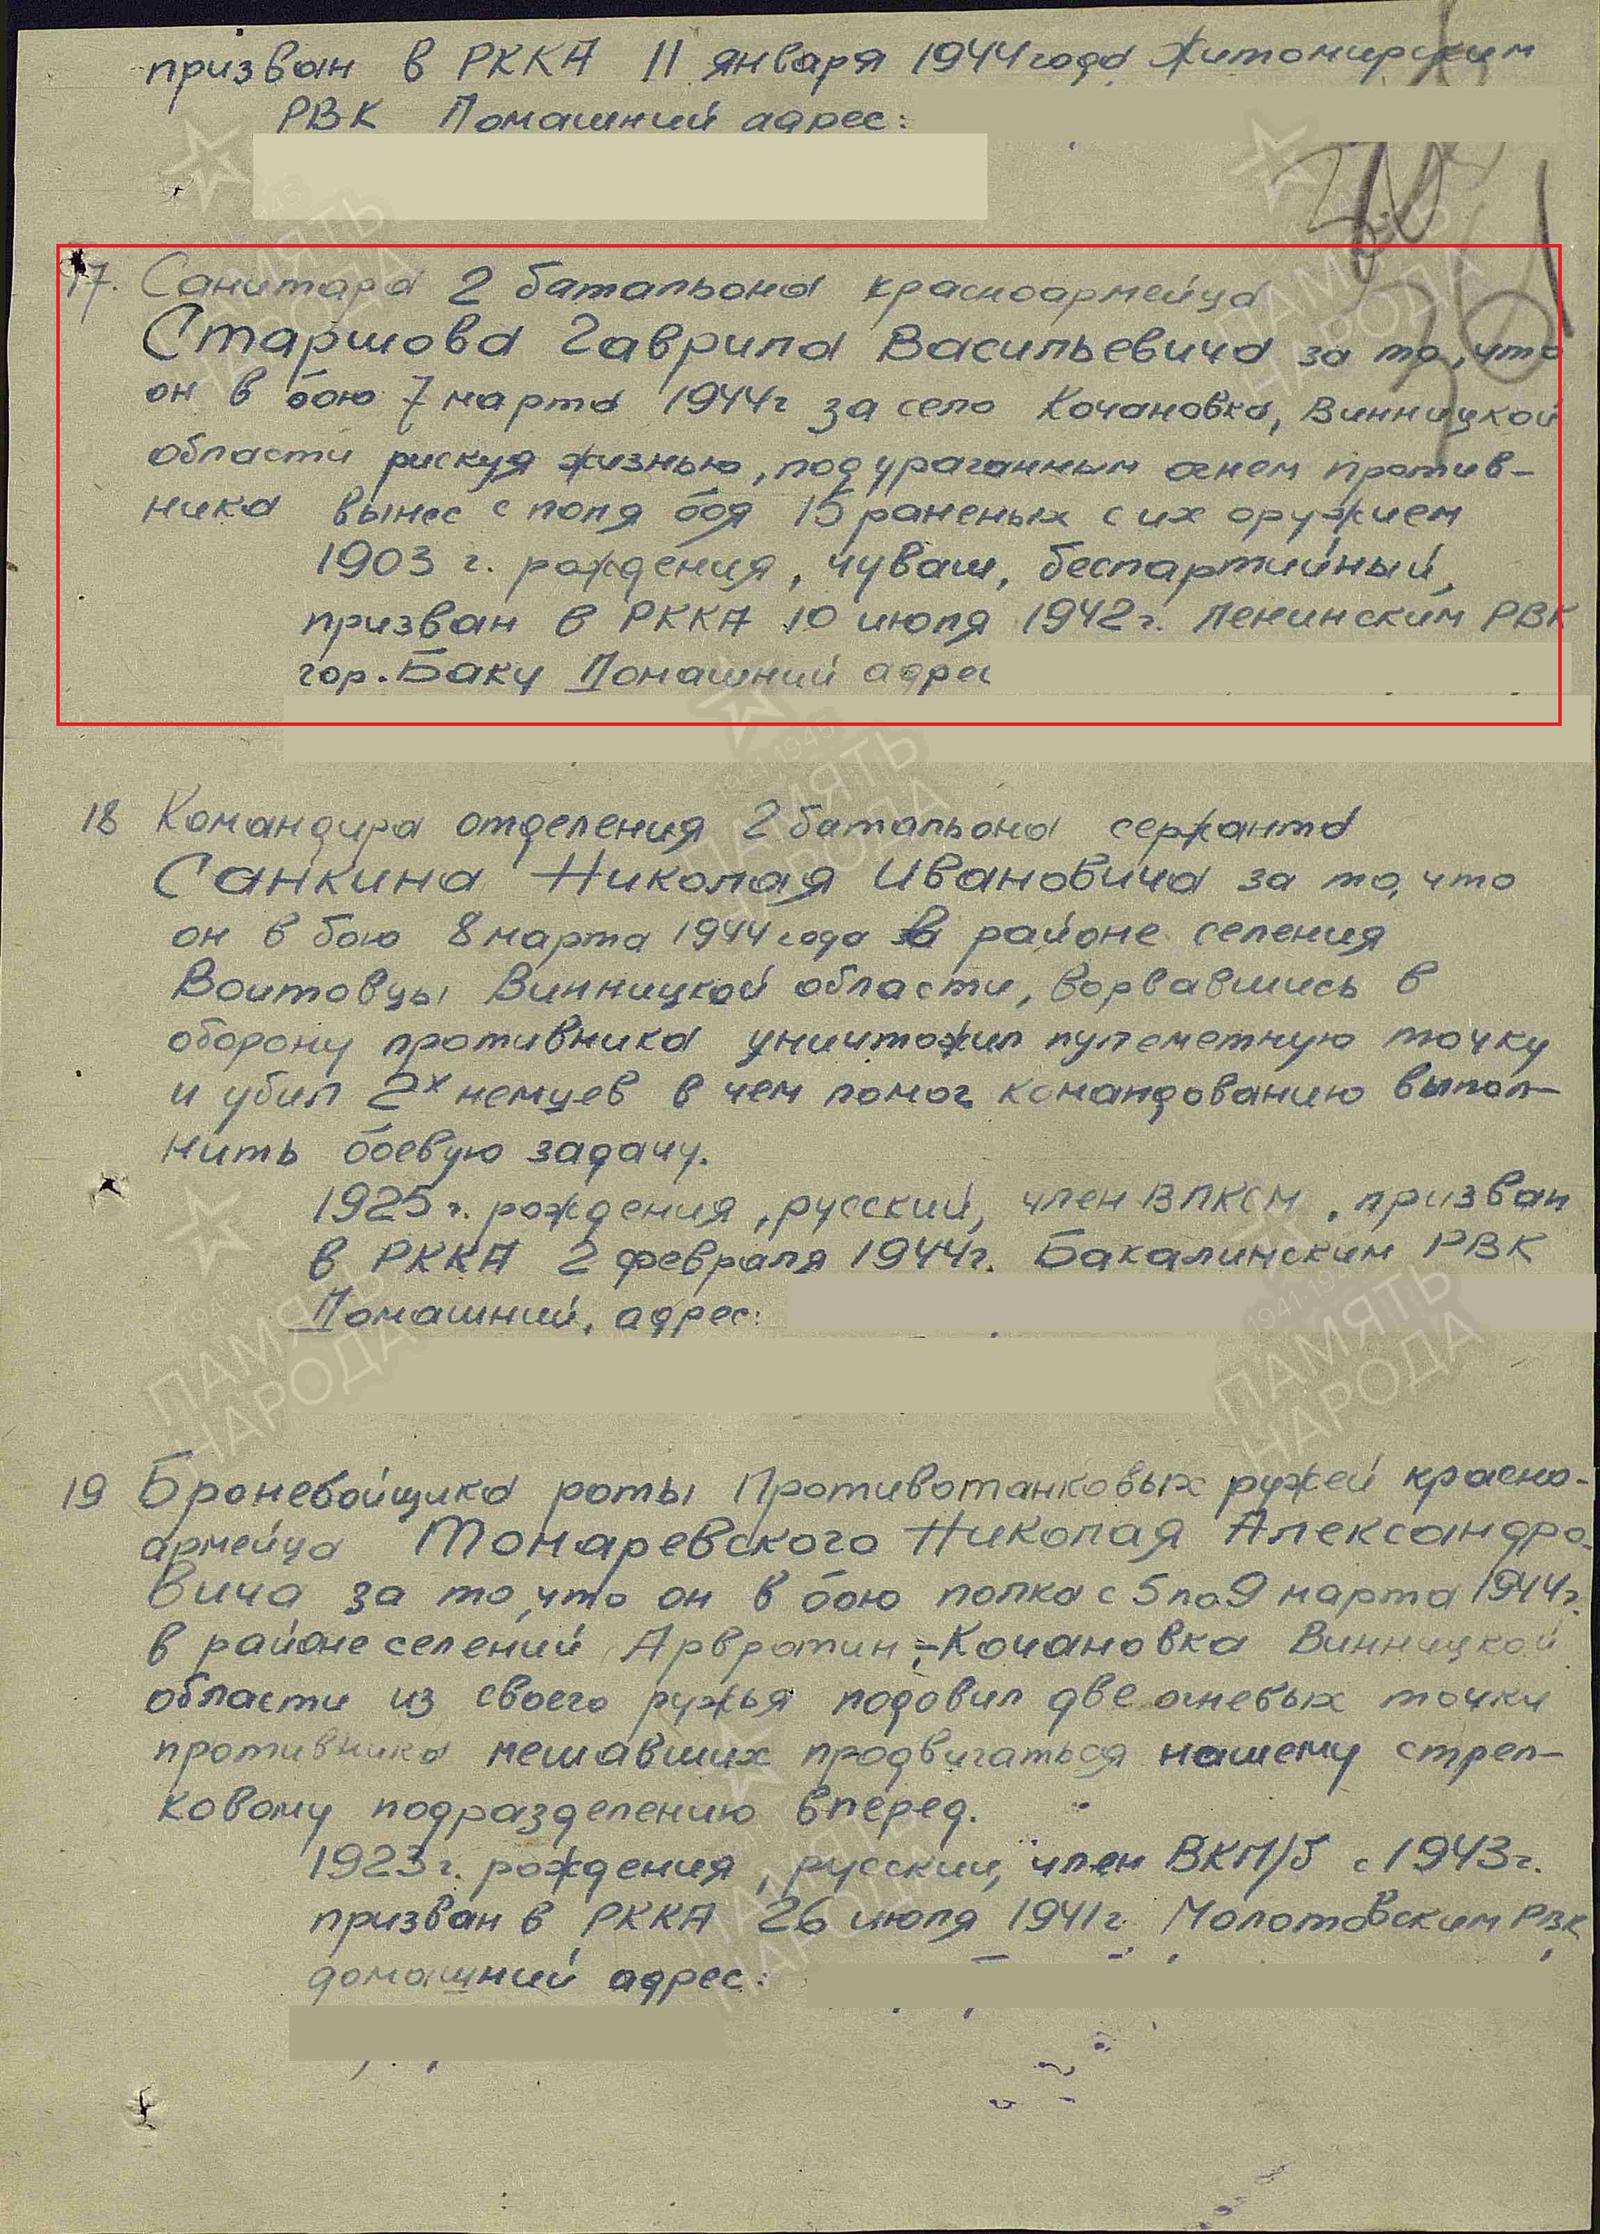 призван в РККА 11 января 1944 года Житомирским
РВК Домашний адрес:
17. Санитара 2 батальона красноармейца
Старшова Гаврила Васильевича за то, что
он в бою 7 марта 1944 г за село Кочановка, Винницкой
области рискуя жизнью, под ураганным огнем против-
ника вынес с поля боя 15 раненых с их оружием
1903 г. рождения, чуваш, беспартийный,
призван в РККА 10 июля 1942 г. Ленинским РВК
гор. Баку Домашний адрес
18 Командира отделения 2 батальона сержанта
Санкина Николая Ивановича за то, что
он в бою 8 марта 1944 года в районе селения
Воитовцы Винницкой области, ворвавшись в
оборону противника уничтожил пулеметную точку
и убил 2х немцев в чем помог командованию выпол-
нить боевую задачу.
1925 г. рождения, русский, член ВЛКСМ, призван
в РККА 2 февраля 1944 г. Бакалинским РВК
Домашний, адрес:
19 Бронебойщика роты Противотанковых ружей красно-
армейца Тонаревского Николая Александро-
вича за то, что он в бою полка с 5 по 9 марта 1944 г.
в районе селений Арвратин,-Кочановка Винницкой
области из своего ружья подовил две огневых точки
противника мешавших продвигаться нашему стрел-
ковому подразделению вперед.
1923 г. рождения, русский, член ВКП/б с 1943 г.
призван в РККА 26 июля 1941 г. Молотовским РВК
домашний адрес:
ПАМЯТЬ
НАРОДА
1941-1945